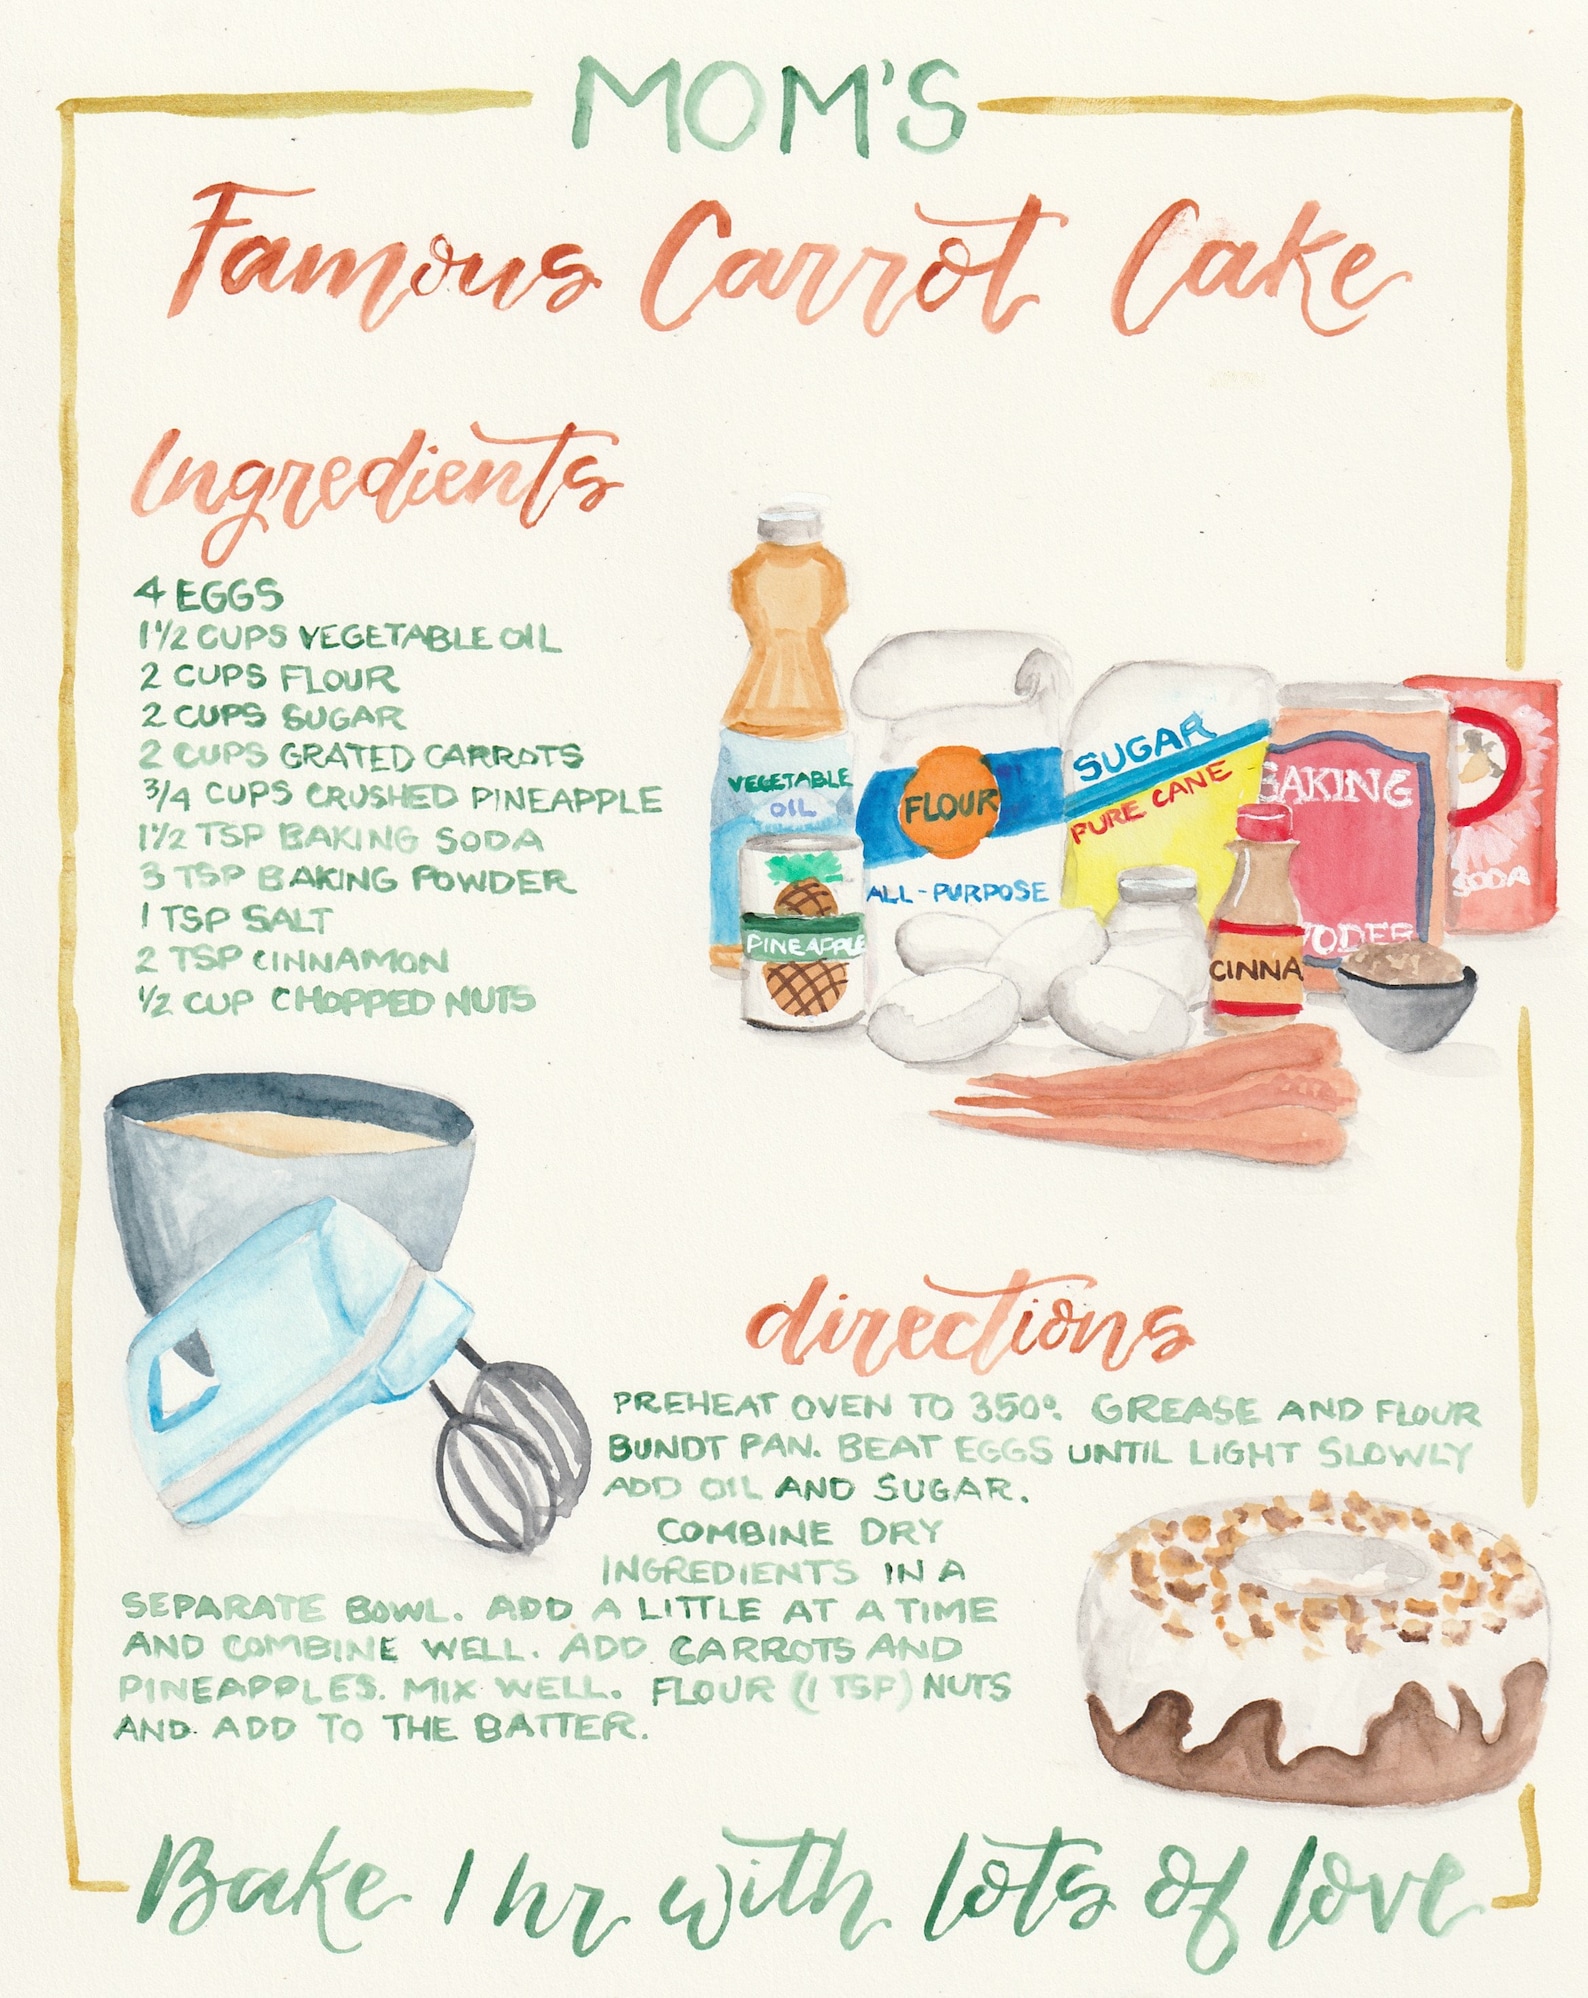 MOM'S
Famous Carrot Cake
Ingredients
4 EGGS
1 1/2 CUPS VEGETABLE OIL
2 CUPS FLOUR
2 CUPS SUGAR
2 CUPS GRATED CARROTS
3/4 CUPS CRUSHED PINEAPPLE
1 1/2 TSP BAKING SODA
3 TSP BAKING POWDER
1 TSP SALT
2 TSP CINNAMON
1/2 CUP CHOPPED NUTS
VEGETABLE
OIL
PINEAPPLE
FLOUR
ALL-PURPOSE
SUGAR
PURE CANE
BAKING
WODER
CINNA
SODA
directions
PREHEAT OVEN TO 350°. GREASE AND FLOUR
BUNDT PAN. BEAT EGGS UNTIL LIGHT SLOWLY
ADD OIL AND SUGAR.
COMBINE DRY
INGREDIENTS IN A
SEPARATE BOWL. ADD A LITTLE AT A TIME
AND COMBINE WELL. ADD CARROTS AND
PINEAPPLES. MIX WELL. FLOUR (1 TSP) NUTS
AND ADD TO THE BATTER.
Bake 1 hr with lots of love